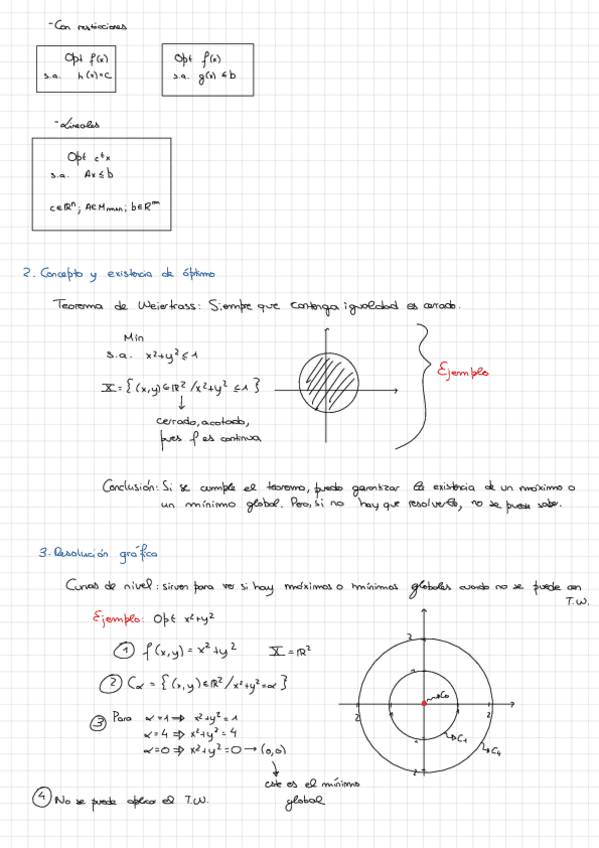 - Con restricciones
Opt f(x)
s.a. h(x)=c
Opt f(x)
s.a. g(x) ≤ b
- Lineales
Opt cᵗx
s.a. Ax ≤ b
c∈ℝⁿ; A∈Mmxn; b∈ℝᵐ
2. Concepto y existencia de óptimo
Teorema de Weiertrass: Siempre que contenga igualdad es cerrado.
Min
s.a. x²+y² ≤ 1
X = {(x,y)∈ℝ² / x²+y² ≤ 1}
cerrado, acotado,
pues f es continua
Ejemplo
Conclusión: Si se cumple el teorema, puedo garantizar la existencia de un máximo o
un mínimo global. Pero, si no hay que resolverlo, no se puede saber.
3. Resolución gráfica
Curvas de nivel: sirven para ver si hay máximos o mínimos globales cuando no se puede con
T.W.
Ejemplo: Opt x²+y²
① f(x,y) = x²+y² X = ℝ²
② Cα = {(x,y)∈ℝ² / x²+y²=α}
③ Para α=1 ⇒ x²+y²=1
α=4 ⇒ x²+y²=4
α=0 ⇒ x²+y²=0 → (0,0)
este es el mínimo
global
④ No se puede aplicar el T.W.
2
1
C₀
2
1
1
2
1
C₁
C₄
2